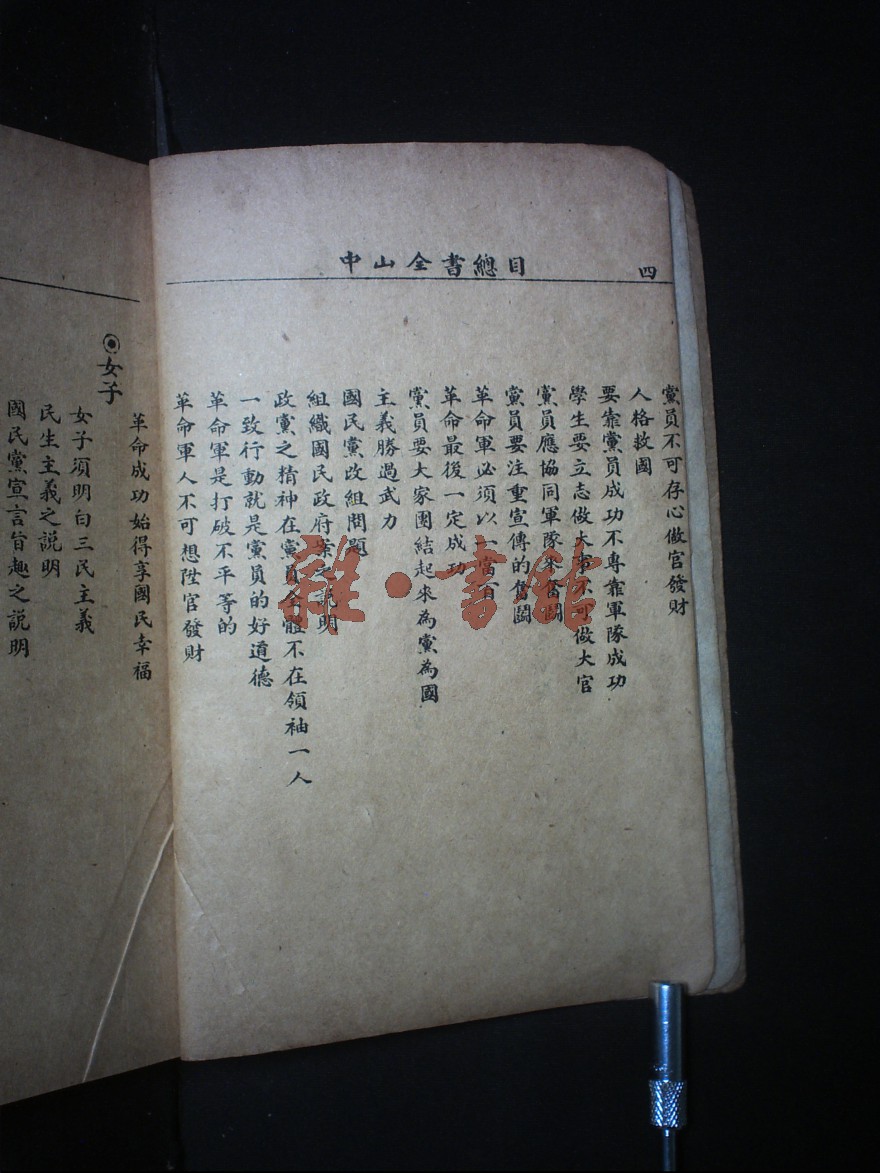 中山全書總目
四
黨員不可存心做官發財
人格救國
要靠黨員成功不專靠軍隊成功
學生要立志做大事不可做大官
黨員應協同軍隊來奮鬬
黨員要注重宣傳的奮鬬
革命軍必須以一當百
革命最後一定成功
黨員要大家團結起來為黨為國
主義勝過武力
國民黨改組問題
組織國民政府案之說明
政黨之精神在黨員全體不在領袖一人
一致行動就是黨員的好道德
革命軍是打破不平等的
革命軍人不可想陞官發財
革命成功始得享國民幸福
◉女子
女子須明白三民主義
民生主義之説明
國民黨宣言旨趣之説明
雜·書館